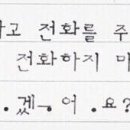 하고 전화를 주
전화하지 마
. 겠 . 어 . 요?